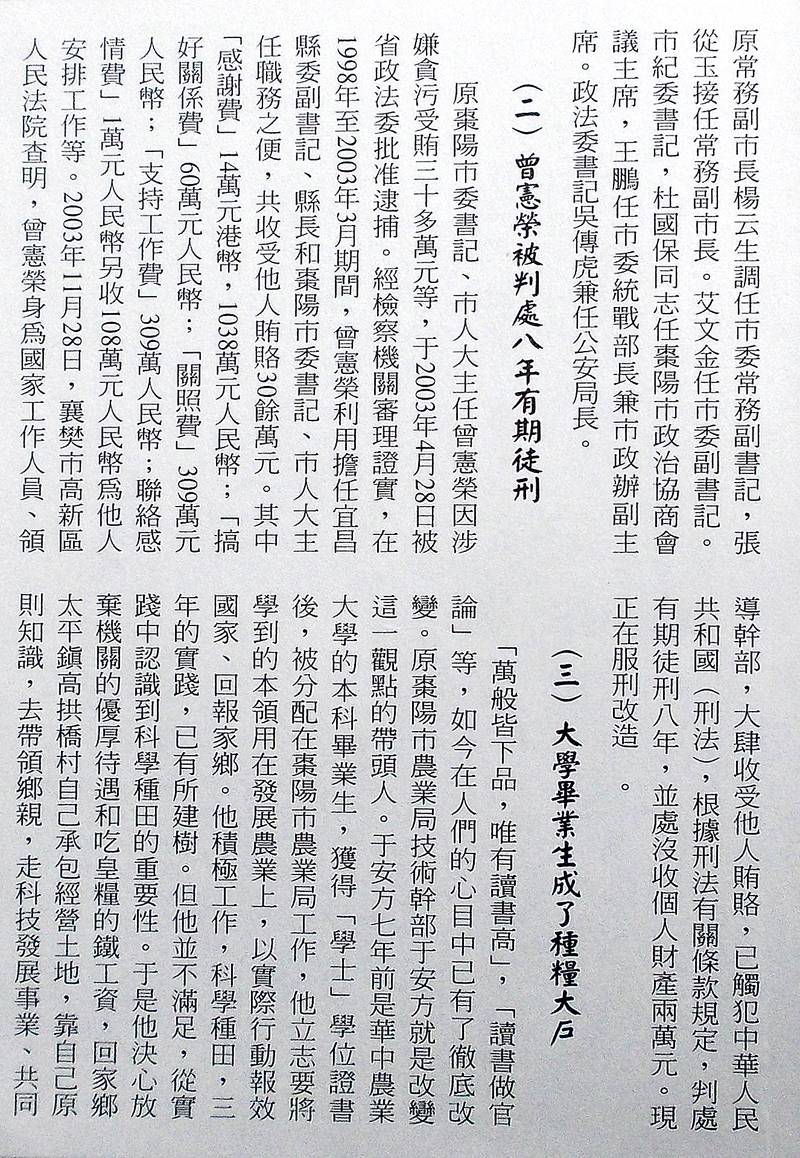 原常務副市長楊云生調任市委常務副書記，張
從玉接任常務副市長。艾文金任市委副書記。
市紀委書記，杜國保同志任棗陽市政治協商會
議主席，王鵬任市委統戰部長兼市政辦副主
席。政法委書記吳傳虎兼任公安局長。
（二）曾憲榮被判處八年有期徒刑
原棗陽市委書記、市人大主任曾憲榮因涉
嫌貪污受賄三十多萬元等，于2003年4月28日被
省政法委批准逮捕。經檢察機關審理證實，在
1998年至2003年3月期間，曾憲榮利用擔任宜昌
縣委副書記、縣長和棗陽市委書記、市人大主
任職務之便，共收受他人賄賂30餘萬元。其中
「感謝費」14萬元港幣，1038萬元人民幣；「搞
好關係費」60萬元人民幣；「關照費」309萬元
人民幣；「支持工作費」309萬人民幣；聯絡感
情費」1萬元人民幣另收108萬元人民幣爲他人
安排工作等。2003年11月28日，襄樊市高新區
人民法院查明，曾憲榮身爲國家工作人員、領
導幹部，大肆收受他人賄賂，已觸犯中華人民
共和國（刑法），根據刑法有關條款規定，判處
有期徒刑八年，並處沒收個人財産兩萬元。現
正在服刑改造。
（三）大學畢業生成了種糧大戶
「萬般皆下品，唯有讀書高」，「讀書做官
論」等，如今在人們的心目中已有了徹底改
變。原棗陽市農業局技術幹部于安方就是改變
這一觀點的帶頭人。于安方七年前是華中農業
大學的本科畢業生，獲得「學士」學位證書
後，被分配在棗陽市農業局工作，他立志要將
學到的本領用在發展農業上，以實際行動報效
國家、回報家鄉。他積極工作，科學種田，三
年的實踐，已有所建樹。但他並不滿足，從實
踐中認識到科學種田的重要性。于是他決心放
棄機關的優厚待遇和吃皇糧的鐵工資，回家鄉
太平鎮高拱橋村自己承包經營土地，靠自己原
則知識，去帶領鄉親，走科技發展事業、共同